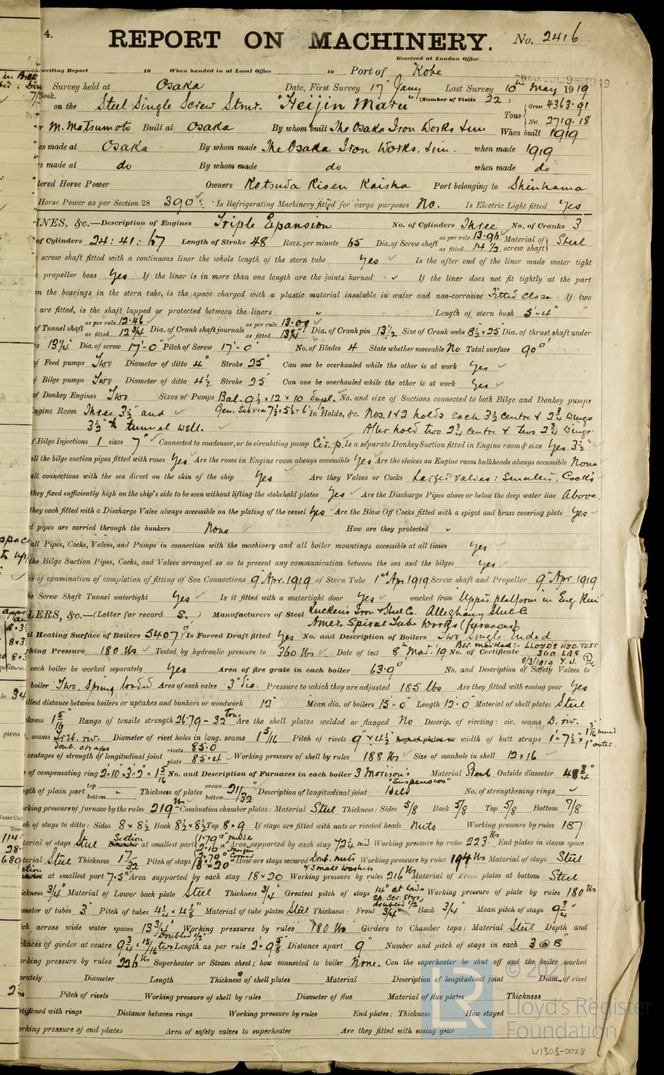 4.
REPORT ON MACHINERY. No. 2416
Received at London Office
writing Report 19 When handed in at Local Office 19 Port of Kobe
Survey held at Osaka Date, First Survey 17th Jany Last Survey 10th May 1919
Book. (Number of Visits 22)
on the Steel Single Screw Stmr. "Heijin Maru" Tons Gross 4363.91 Net 2719.18
M. Matsumoto Built at Osaka By whom built The Osaka Iron Works Lim. When built 1919
es made at Osaka By whom made The Osaka Iron Works, Lim. when made 1919
rs made at do By whom made do when made do
tered Horse Power Owners Katsuda Kisen Kaisha Port belonging to Shinhama
Horse Power as per Section 28 390 Is Refrigerating Machinery fitted for cargo purposes No. Is Electric Light fitted Yes
INES, &c.—Description of Engines Triple Expansion No. of Cylinders Three No. of Cranks 3
of Cylinders 24: 41: 67 Length of Stroke 48 Revs. per minute 65 Dia. of Screw shaft as per rule 13.96 as fitted 14½ Material of screw shaft Steel
screw shaft fitted with a continuous liner the whole length of the stern tube Yes Is the after end of the liner made water tight
e propeller boss Yes If the liner is in more than one length are the joints burned If the liner does not fit tightly at the part
n the bearings in the stern tube, is the space charged with a plastic material insoluble in water and non-corrosive Fitted close If two
are fitted, is the shaft lapped or protected between the liners Length of stern bush 5'-4"
of Tunnel shaft as per rule 12.46 as fitted 12¾ Dia. of Crank shaft journals as per rule 13.09 as fitted 13½ Dia. of Crank pin 13½ Size of Crank webs 8½ x 25 Dia. of thrust shaft under
13½ Dia. of screw 17'-0" Pitch of Screw 17'-0" No. of Blades 4 State whether moveable No Total surface 90
of Feed pumps Two Diameter of ditto 4" Stroke 25" Can one be overhauled while the other is at work Yes
of Bilge pumps Two Diameter of ditto 4½ Stroke 25" Can one be overhauled while the other is at work Yes
of Donkey Engines Two Sizes of Pumps Bal. 9½ x 12 x 10 Dupl. No. and size of Suctions connected to both Bilge and Donkey pumps
Engine Room Three 3½" and Gen. Service 7½ x 5½ x 6" In Holds, &c. Nos. 1 & 2 holds each 3½ centre & 2¾ wings
3½" to tunnel well. After hold two 2¾ centre & two 2¾ wings
f Bilge Injections 1 sizes 7" Connected to condenser, or to circulating pump Cir. p. Is a separate Donkey Suction fitted in Engine room & size Yes 3½"
all the bilge suction pipes fitted with roses Yes Are the roses in Engine room always accessible Yes Are the sluices on Engine room bulkheads always accessible None
all connections with the sea direct on the skin of the ship Yes Are they Valves or Cocks Larger valves: Smaller Cocks
they fixed sufficiently high on the ship's side to be seen without lifting the stokehold plates Yes Are the Discharge Pipes above or below the deep water line Above
they each fitted with a Discharge Valve always accessible on the plating of the vessel Yes Are the Blow Off Cocks fitted with a spigot and brass covering plate Yes
t pipes are carried through the bunkers None How are they protected
all Pipes, Cocks, Valves, and Pumps in connection with the machinery and all boiler mountings accessible at all times Yes
the Bilge Suction Pipes, Cocks, and Valves arranged so as to prevent any communication between the sea and the bilges Yes
es of examination of completion of fitting of Sea Connections 9th Apr. 1919 of Stern Tube 1st Apr 1919 Screw shaft and Propeller 9th Apr. 1919
he Screw Shaft Tunnel watertight Yes Is it fitted with a watertight door Yes worked from Upper platform in Eng. Rm
LERS, &c.—(Letter for record S.) Manufacturers of Steel Lukens Iron & Steel C. Allegheny Steel C.
Amer. Spiral Tube Works (furnaces)
al Heating Surface of Boilers 5407 Is Forced Draft fitted Yes No. and Description of Boilers Two Single Ended
rking Pressure 180 lbs Tested by hydraulic pressure to 360 lbs Date of test 8th Mar. 19 No. of Certificate
Blr. marked:- LLOYDS HYD. TEST 360 LBS 8/3/1919 Y.J.
each boiler be worked separately Yes Area of fire grate in each boiler 63.9 No. and Description of Safety Valves to
boiler Two, Spring loaded Area of each valve 3" dia. Pressure to which they are adjusted 185 lbs Are they fitted with easing gear Yes
llest distance between boilers or uptakes and bunkers or woodwork 12" Mean dia. of boilers 15'-0" Length 12'-0 Material of shell plates Steel
ckness 1 5/16 Range of tensile strength 26.79 - 32 tons Are the shell plates welded or flanged No Descrip. of riveting: cir. seams D. riv.
seams Treb. riv. doub. straps Diameter of rivet holes in long. seams 1 5/16 Pitch of rivets 9" x 4½ width of butt straps
centages of strength of longitudinal joint rivets 85.0 plate 85.4 Working pressure of shell by rules 188 lbs Size of manhole in shell 12 x 16
e of compensating ring 2'-10" x 3'-2" x 1 5/16 No. and Description of Furnaces in each boiler 3 Morison's "Suspension" Material Steel Outside diameter 48¾"
gth of plain part top bottom Thickness of plates crown bottom 21/32 Description of longitudinal joint Weld No. of strengthening rings
rking pressure of furnace by the rules 219 lbs Combustion chamber plates: Material Steel Thickness: Sides 5/8 Back 5/8 Top 5/8 Bottom 7/8
ch of stays to ditto: Sides 8 x 8½ Back 8½ x 8½ Top 8 x 9 If stays are fitted with nuts or riveted heads Nuts Working pressure by rules 187
terial of stays Steel at smallest part Area supported by each stay 72 Working pressure by rules 223 lbs End plates in steam space:
terial Steel Thickness Pitch of stays 18" x 20" How are stays secured Doub. nuts & small washers Working pressure by rules 194 lbs Material of stays Steel
at smallest part 7.5 Area supported by each stay 18 x 20 Working pressure by rules 216 lbs Material of Front plates at bottom Steel
ickness ¾" Material of Lower back plate Steel Thickness ¾" Greatest pitch of stays 14" Working pressure of plate by rules 180 lbs
meter of tubes 3" Pitch of tubes 4¼ x 4⅛" Material of tube plates Steel Thickness: Front ¾" Back ¾" Mean pitch of stays 9¾"
ch across wide water spaces 13¾" Working pressures by rules 180 lbs Girders to Chamber tops: Material Steel Depth and
ckness of girder at centre 9¾ x 15/16 two Length as per rule 2'-9⅜ Distance apart 9" Number and pitch of stays in each 3 @ 8
orking pressure by rules 226 lbs Superheater or Steam chest; how connected to boiler None. Can the superheater be shut off and the boiler worked
arately Diameter Length Thickness of shell plates Material Description of longitudinal joint Diam. of rivet
Pitch of rivets Working pressure of shell by rules Diameter of flue Material of flue plates Thickness
stiffened with rings Distance between rings Working pressure by rules End plates: Thickness How stayed
orking pressure of end plates Area of safety valves to superheater Are they fitted with easing gear
Lloyd's Register
Foundation
W1303-0028